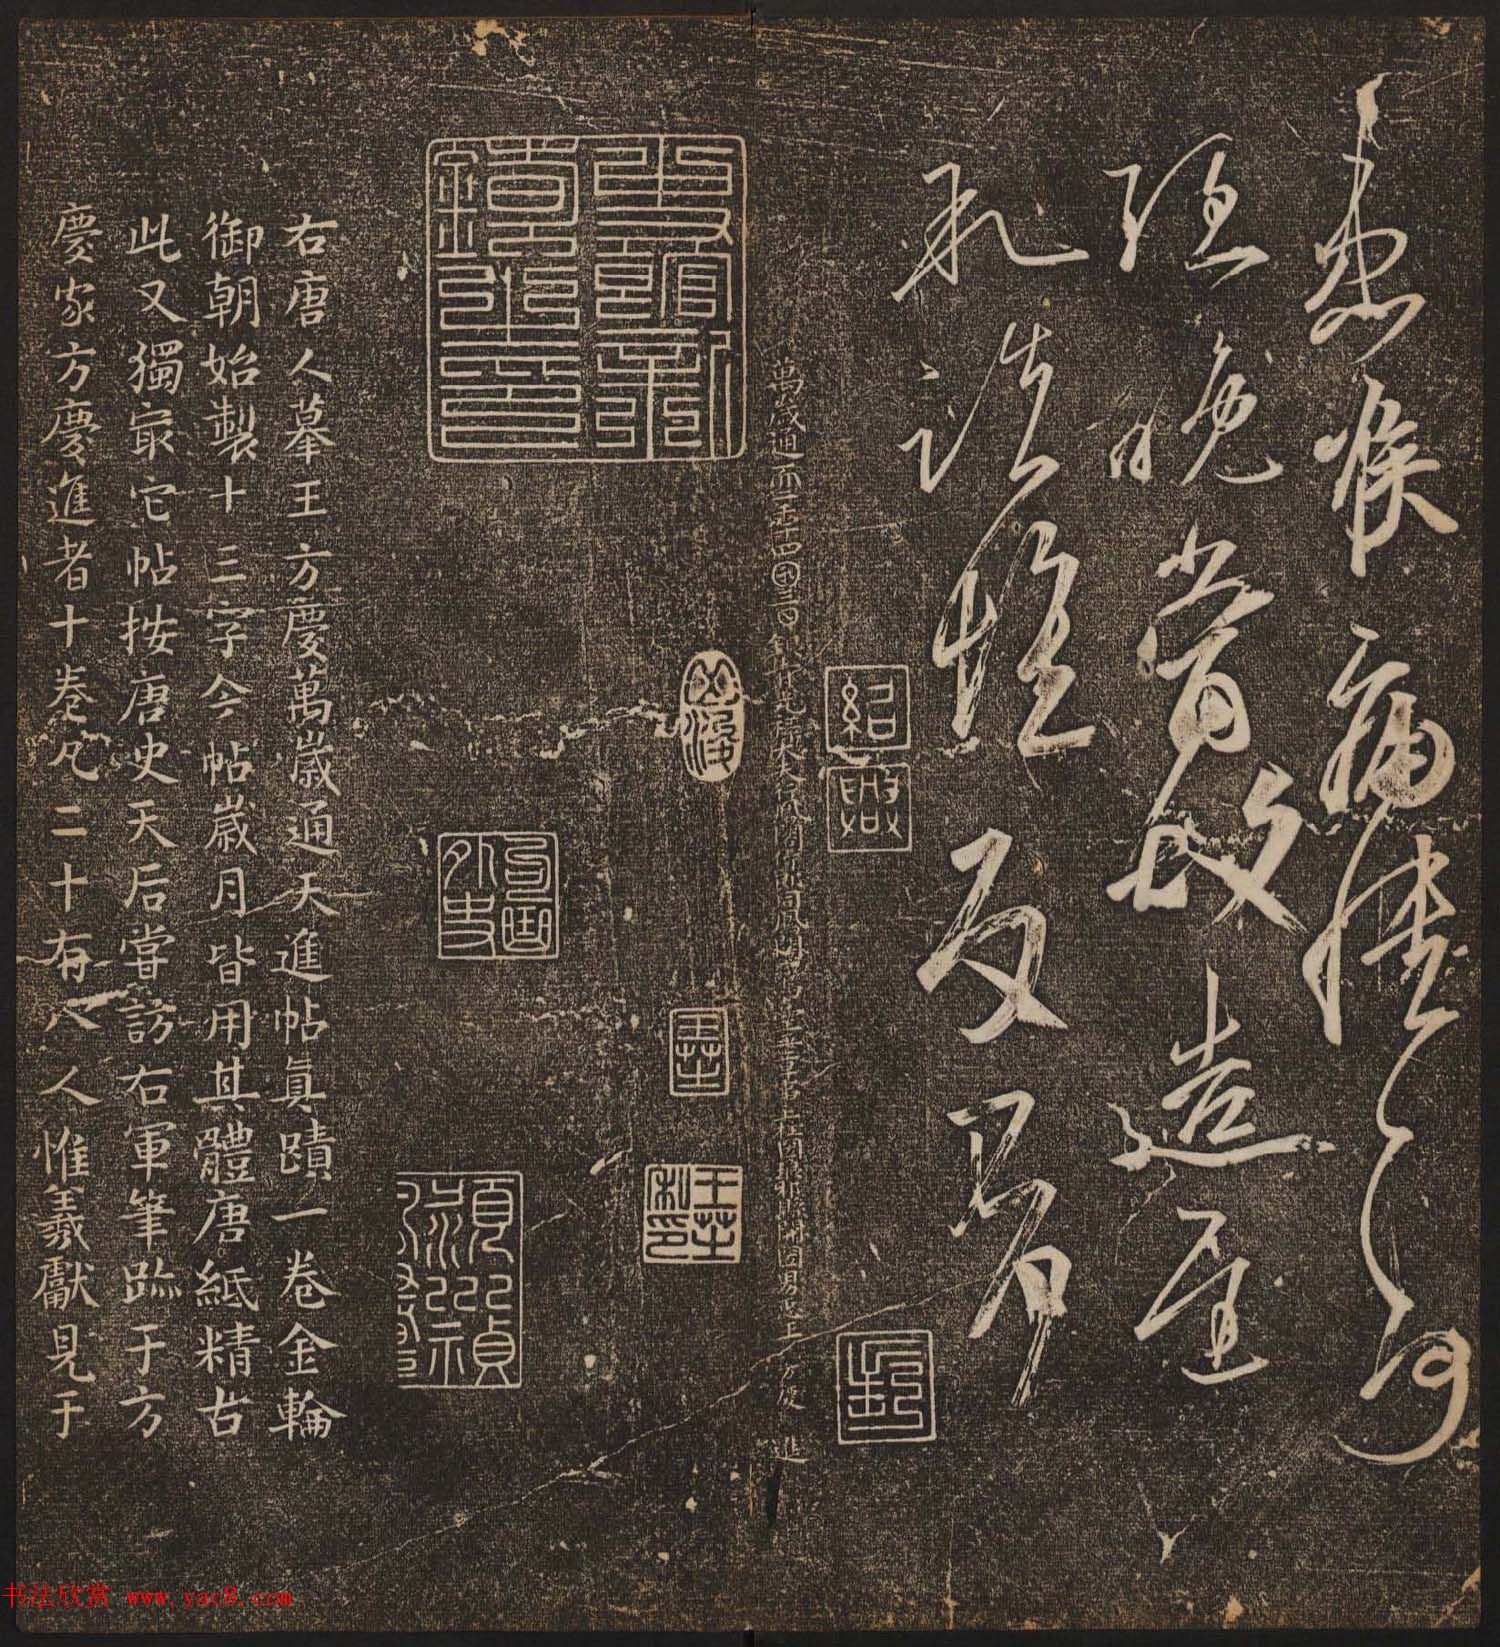 患喉痛憒〻何
強晚當故造遲
諸惟反
紹興
萬歲通𠀑二𠡦四囝三日銀青光祿大夫行鳳閣侍郎同鳳閣鸞臺平章事上柱國琅耶縣開國男臣王方慶進
王芝
王芝私印
右唐人摹王方慶萬歲通天進帖真蹟一卷金輪
御朝始製十三字今帖歲月皆用其體唐紙精古
此又獨㝡它帖按唐史天后嘗訪右軍筆跡于方
慶家方慶進者十卷凡二十有八人惟羲獻見于
书法欣赏 www.yac8.com